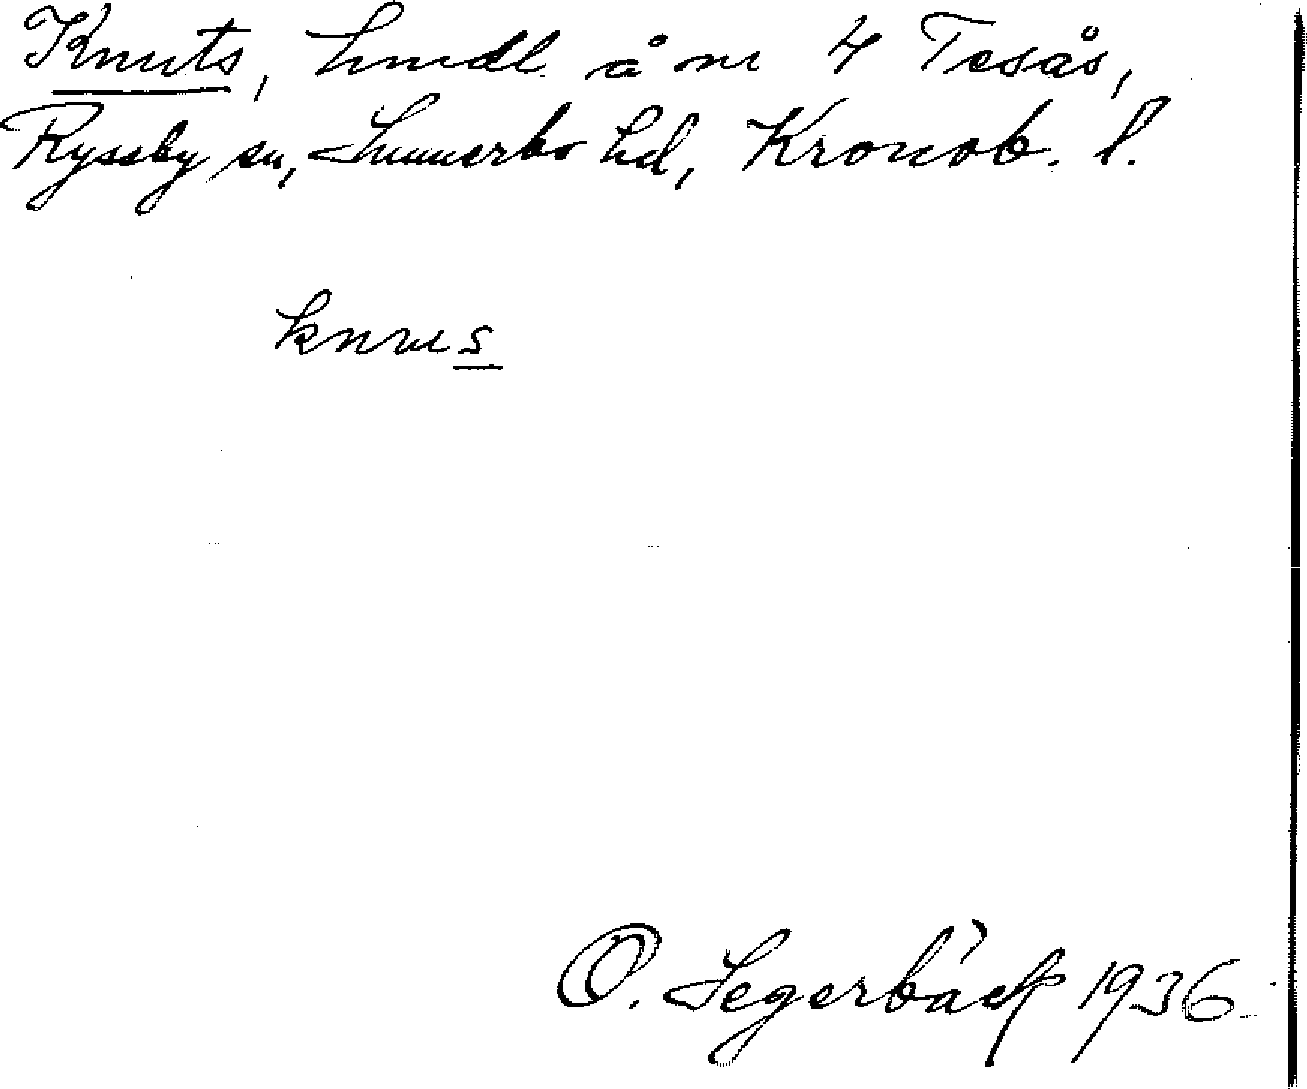 Knuts, hmdl. å nr 4 Tesås,
Ryssby sn, Sunnerbo hd, Kronob. l.
knus
O. Segerbäck 1936